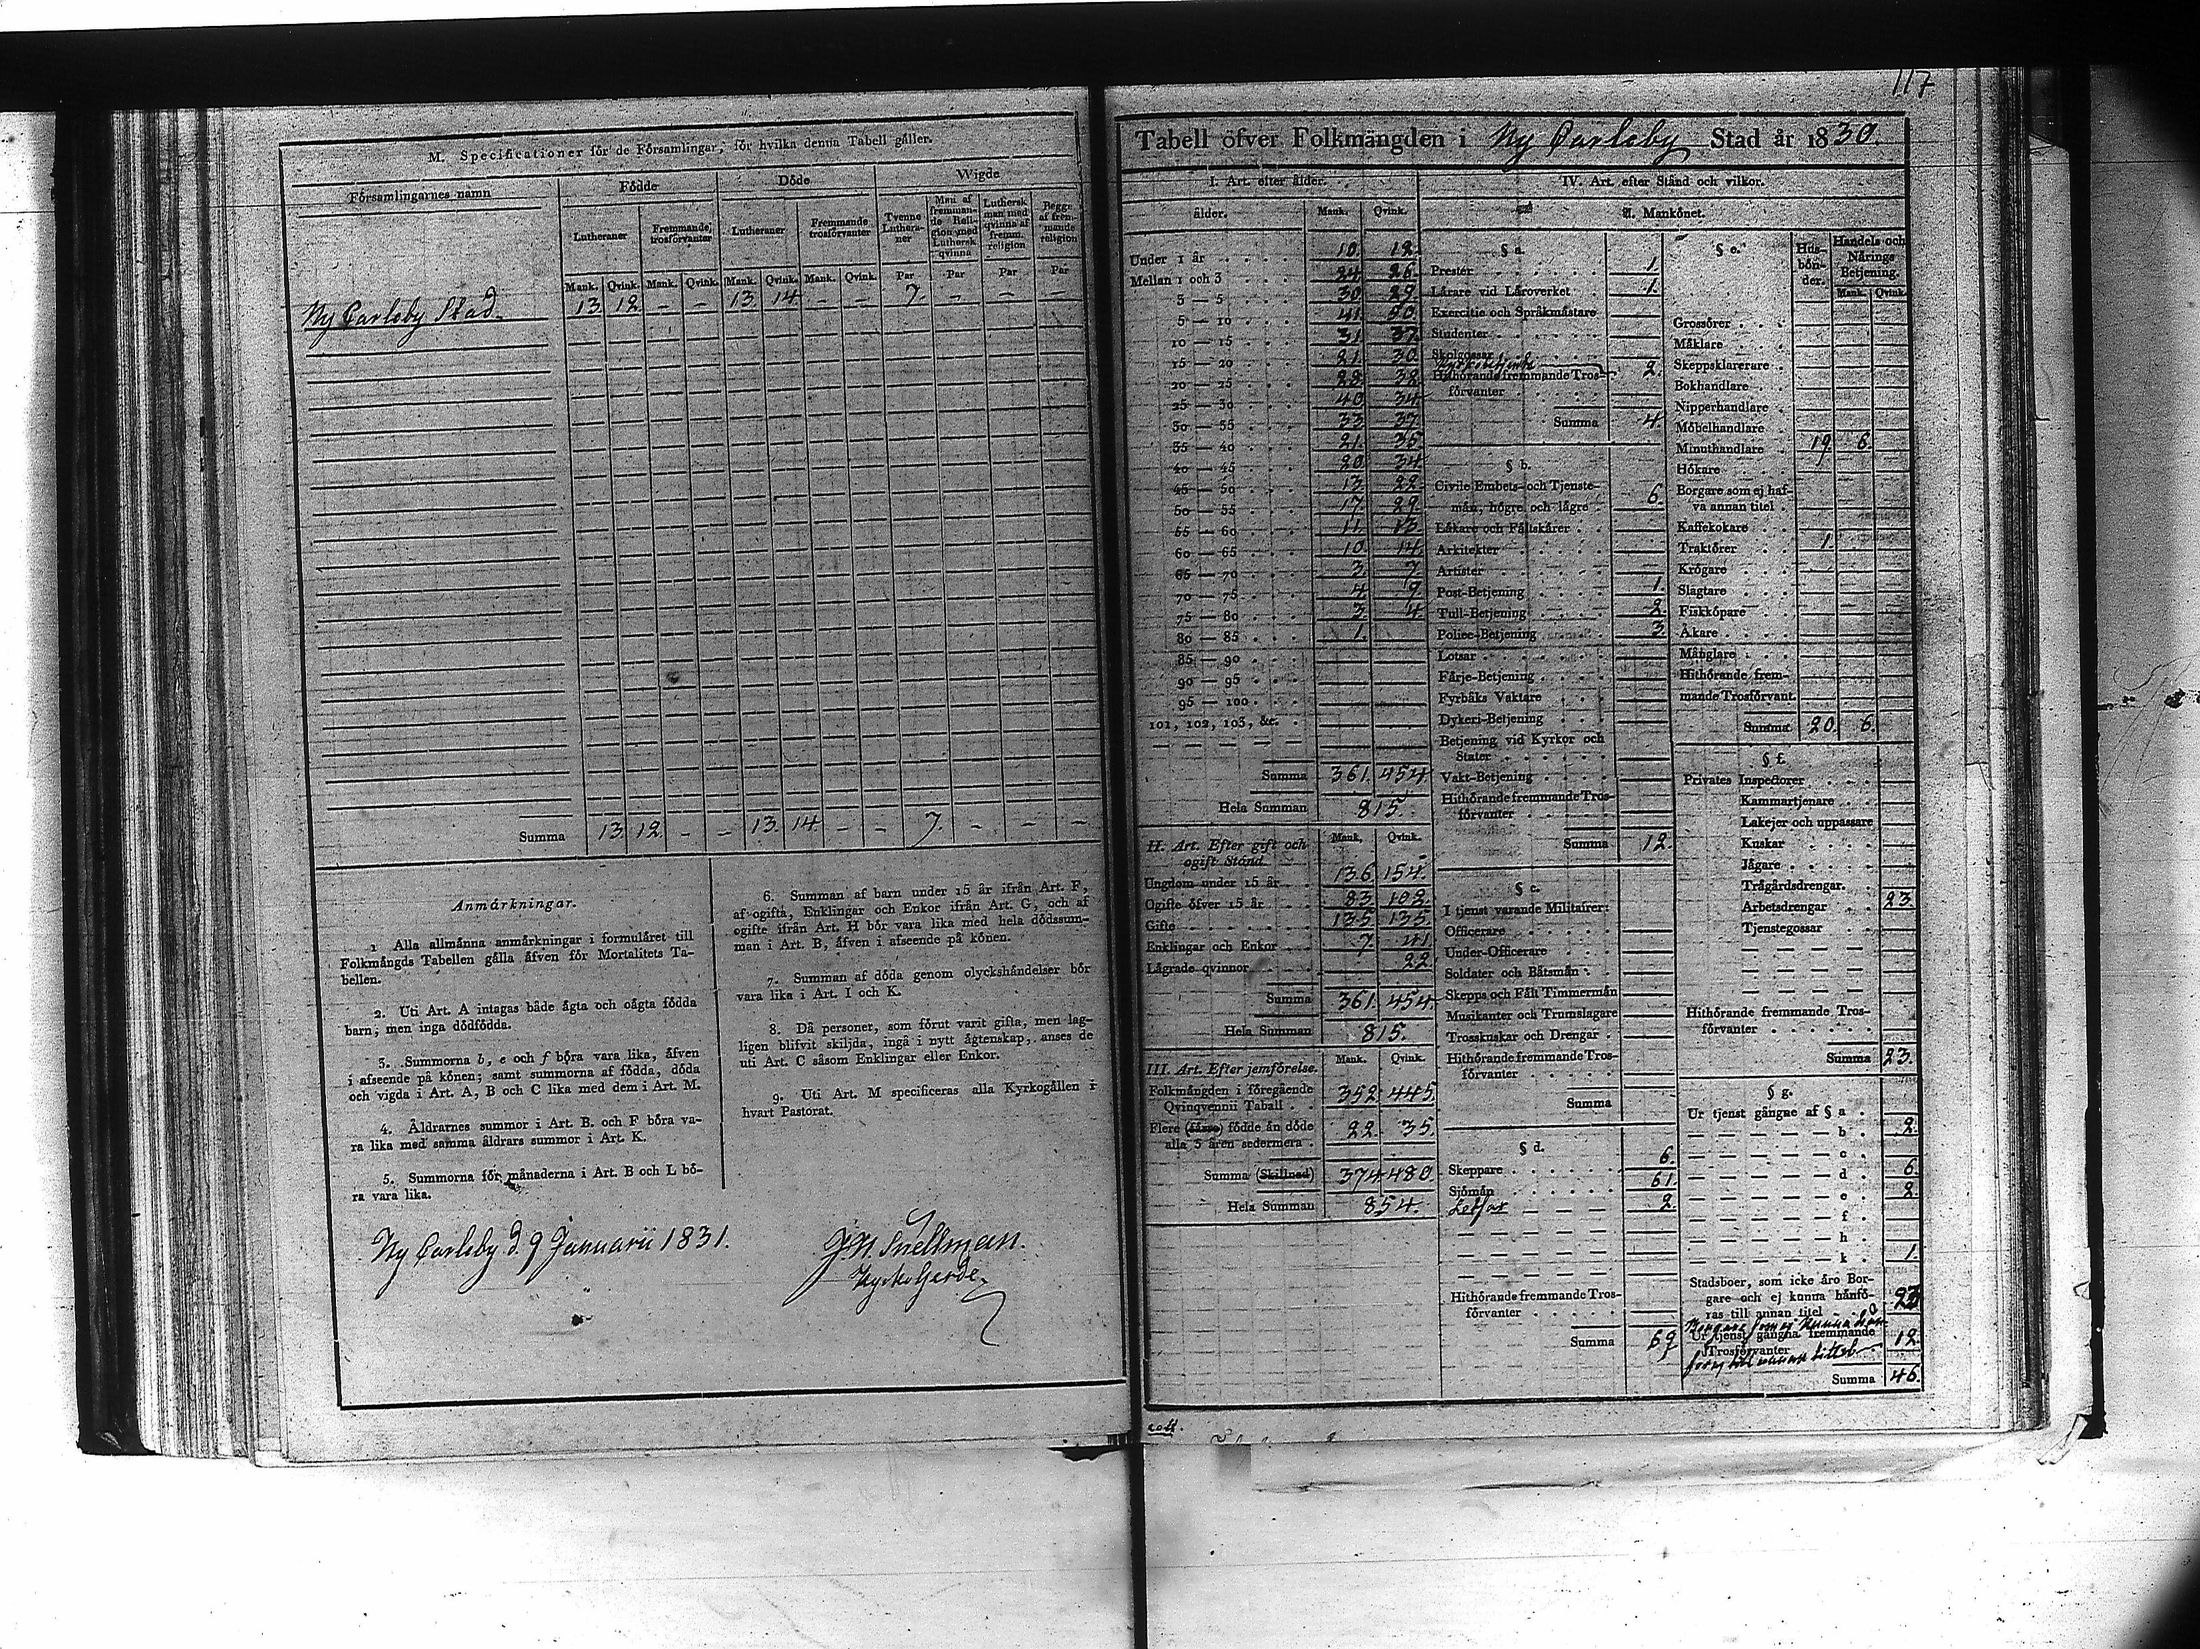 M. Specificationer för de Församlingar, för hvilka denna Tabell gäller.
Församlingarnes namn
Födde
Döde
Wigde
Lutheraner
Fremmande trosförvanter
Lutheraner
Fremmande trosförvanter
Tvenne Lutheraner
Men af fremmande Religion med Luthersk qvinna
Luthersk man med qvinna af fremm. religion
Begge af fremmande religion
Mank. Qvink. Mank. Qvink. Mank. Qvink. Mank. Qvink. Par Par Par Par
Ny Carleby Stad. 13 12 – – 13. 14 – – 7. – – –
Summa 13 12. – – 13. 14 – – 7. – – –
Anmärkningar.
1 Alla allmänna anmärkningar i formuläret till
Folkmängds Tabellen gälla äfven för Mortalitets Ta-
bellen.
2. Uti Art. A intagas både ägta och oägta födda
barn, men inga dödfödda.
3. Summorna b, e och f böra vara lika, äfven
i afseende på könen; samt summorna af födda, döda
och vigda i Art. A, B och C lika med dem i Art. M.
4. Åldrarnes summor i Art. B. och F böra va-
ra lika med samma åldrars summor i Art. K.
5. Summorna för månaderna i Art. B och L bö-
ra vara lika.
6. Summan af barn under 15 år ifrån Art. F,
af ogifta, Enklingar och Enkor ifrån Art. G, och af
ogifte ifrån Art. H bör vara lika med hela dödssum-
man i Art. B, äfven i afseende på könen.
7. Summan af döda genom olyckshändelser bör
vara lika i Art. I och K.
8. Då personer, som förut varit gifta, men lag-
ligen blifvit skiljda, ingå i nytt ägtenskap, anses de
uti Art. C såsom Enklingar eller Enkor.
9. Uti Art. M specificeras alla Kyrkogällen i
hvart Pastorat.
Ny Carleby d. 9 Januarii 1831.
Snellman.
Kyrkoherde.
117
Tabell öfver Folkmängden i Ny Carleby Stad år 1830.
I. Art. efter ålder.
ålder. Mank. Qvink.
Under 1 år 10. 12.
Mellan 1 och 3 24. 26.
3 — 5 30 29.
5 — 10 41. 50.
10 — 15 31. 37.
15 — 20 21. 30.
20 — 25 28. 32.
25 — 30 40 34.
30 — 35 33 37.
35 — 40 21. 35.
40 — 45 20. 34.
45 — 50 13. 22.
50 — 55 17. 29.
55 — 60 11. 13.
60 — 65 10. 14.
65 — 70 3. 7.
70 — 75 4. 9.
75 — 80 3. 4.
80 — 85 1.
85 — 90
90 — 95
95 — 100
101, 102, 103, &c.
Summa 361. 454.
Hela Summan 815.
II. Art. Efter gift och
ogift Stånd. Mank. Qvink.
Ungdom under 15 år 136. 154.
Ogifte öfver 15 år 83. 102.
Gifte 135 135.
Enklingar och Enkor 7. 41.
Lägrade qvinnor 22.
Summa 361. 454.
Hela Summan 815.
III. Art. Efter jemförelse. Mank. Qvink.
Folkmängden i föregående
Qvinqvennii Taball 352. 445.
Flere (färre) födde än döde
alla 5 åren sedermera 22. 35.
Summa (Skillnad) 374 480.
Hela Summan 854.
IV. Art. efter Stånd och vilkor.
Mankönet.
§ a.
Prester 1.
Lärare vid Läroverket 1.
Exercitie och Språkmästare
Studenter
Skolgossar
Kyrkobetjente 2.
Hithörande fremmande Tros-
förvanter
Summa 4.
§ b.
Civile Embets- och Tjenste-
män, högre och lägre 6.
Läkare och Fältskärer
Arkitekter
Artister
Post-Betjening 1.
Tull-Betjening 2.
Police-Betjening 3.
Lotsar
Färje-Betjening
Fyrbåks Vaktare
Dykeri-Betjening
Betjening vid Kyrkor och
Stater
Vakt-Betjening
Hithörande fremmande Tros-
förvanter
Summa 12.
§ c.
I tjenst varande Militairer:
Officerare
Under-Officerare
Soldater och Båtsmän
Skepps och Fält Timmermän
Musikanter och Trumslagare
Trosskuskar och Drengar
Hithörande fremmande Tros-
förvanter
Summa
§ d.
Skeppare 6.
Sjömän 61.
2.
Hithörande fremmande Tros-
förvanter
Summa 69
§ e. Hus-bön-der. Handels och Närings Betjening.
Mank. Qvink.
Grossörer
Mäklare
Skeppsklarerare
Bokhandlare
Nipperhandlare
Möbelhandlare
Minuthandlare 19. 6.
Hökare
Borgare som ej haf-
va annan titel
Kaffekokare
Traktörer 1.
Krögare
Slagtare
Fiskköpare
Åkare
Månglare
Hithörande frem-
mande Trosförvant.
Summa 20. 6.
§ f.
Privates Inspectorer
Kammartjenare
Lakejer och uppassare
Kuskar
Jägare
Trägårdsdrengar.
Arbetsdrengar 23.
Tjenstegossar
Hithörande fremmande Tros-
förvanter
Summa 23.
§ g.
Ur tjenst gångne af § a
— — — — — b 2.
— — — — — c
— — — — — d 6.
— — — — — e 2.
— — — — — f
— — — — — h
— — — — — k 1.
Stadsboer, som icke äro Bor-
gare och ej kunna hänfö-
ras till annan titel 23
Borgare som ej kunna hän-
Ur tjenst gångna fremmande
Trosförvanter 12.
föras till annan tittel
Summa 46.